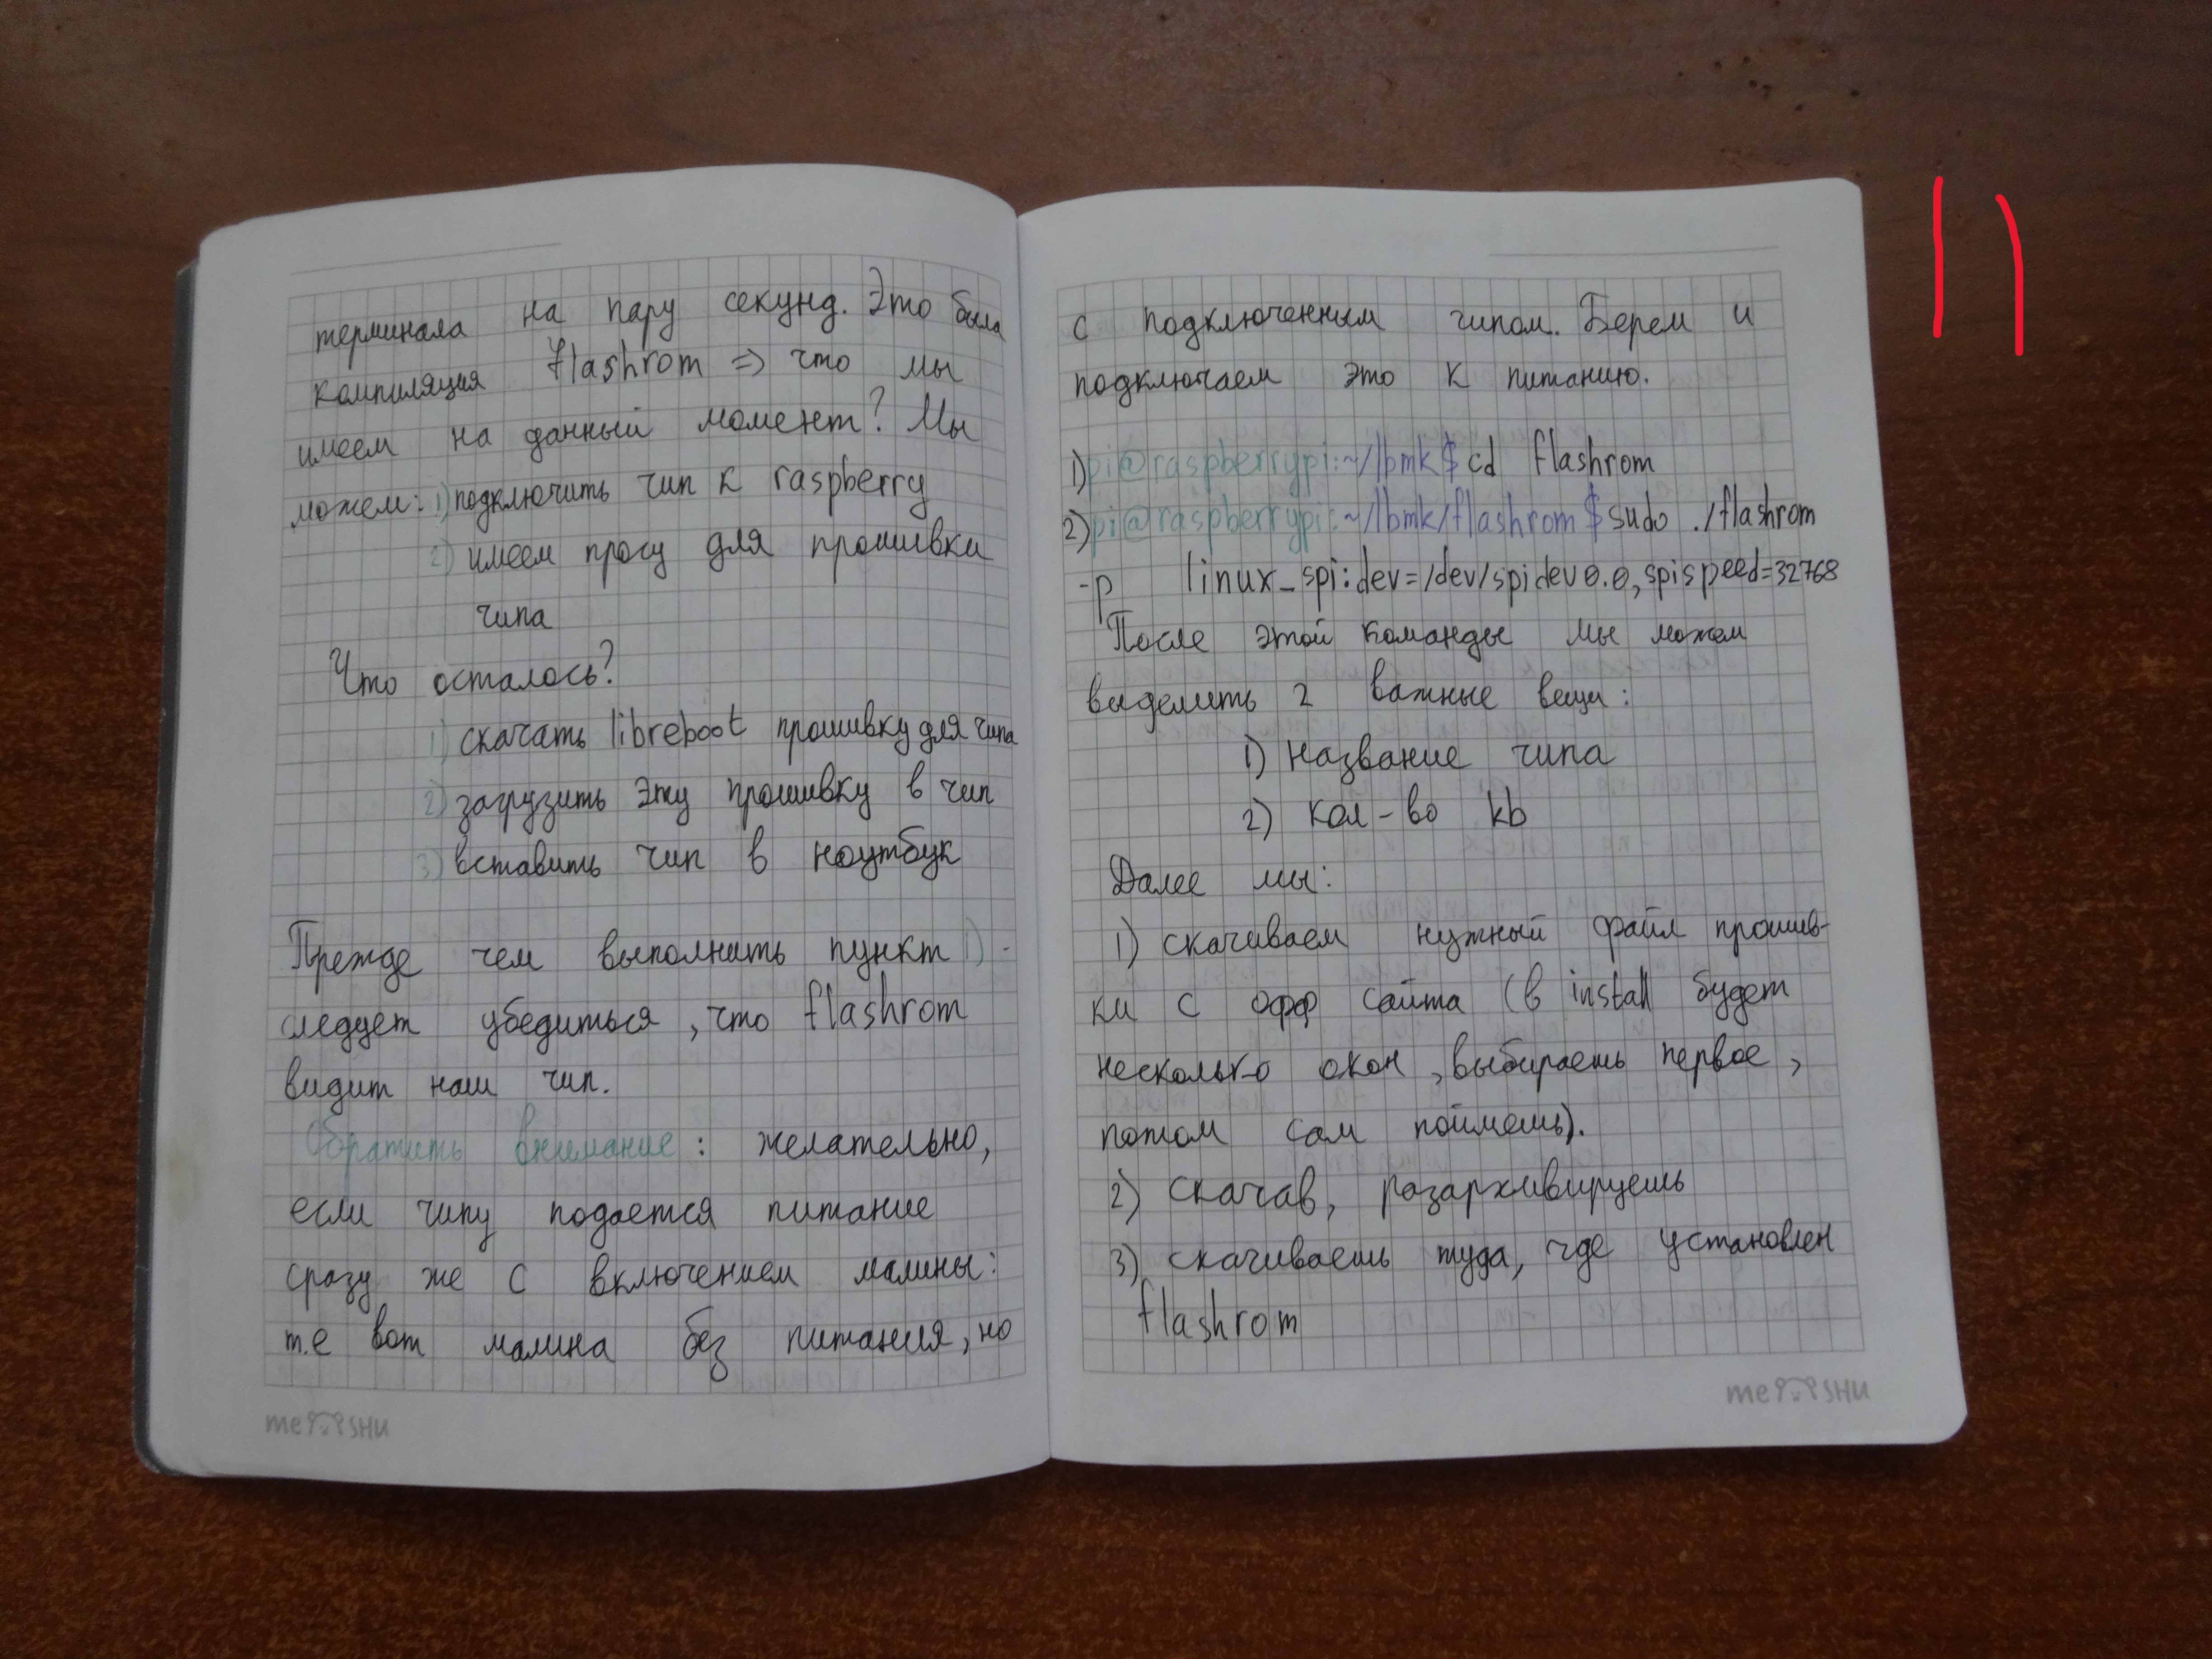 терминала на пару секунд. Это была
компиляция flashrom => что мы
имеем на данный момент? Мы
можем: 1) подключить чип к raspberry
2) имеем прогу для прошивки
чипа
Что осталось?
1) скачать libreboot прошивку для чипа
2) загрузить эту прошивку в чип
3) вставить чип в ноутбук
Прежде чем выполнить пункт 1) -
следует убедиться, что flashrom
видит наш чип.
Обратить внимание: желательно,
если чипу подается питание
сразу же с включением малины:
т.е вот малина без питания, но
meSHU
с подключенным чипом. Берем и
подключаем это к питанию.
1) pi@raspberrypi:~/lbmk$ cd flashrom
2) pi@raspberrypi:~/lbmk/flashrom $ sudo ./flashrom
-p linux_spi:dev=/dev/spidev0.0,spispeed=32768
После этой команды мы можем
выделить 2 важные вещи:
1) Название чипа
2) кол-во kb
Далее мы:
1) скачиваем нужный файл прошив-
ки с офф сайта (в install будет
несколько окон, выбираешь первое,
потом сам поймешь).
2) скачав, разархивируешь
3) скачиваешь туда, где установлен
flashrom
meSHU
11